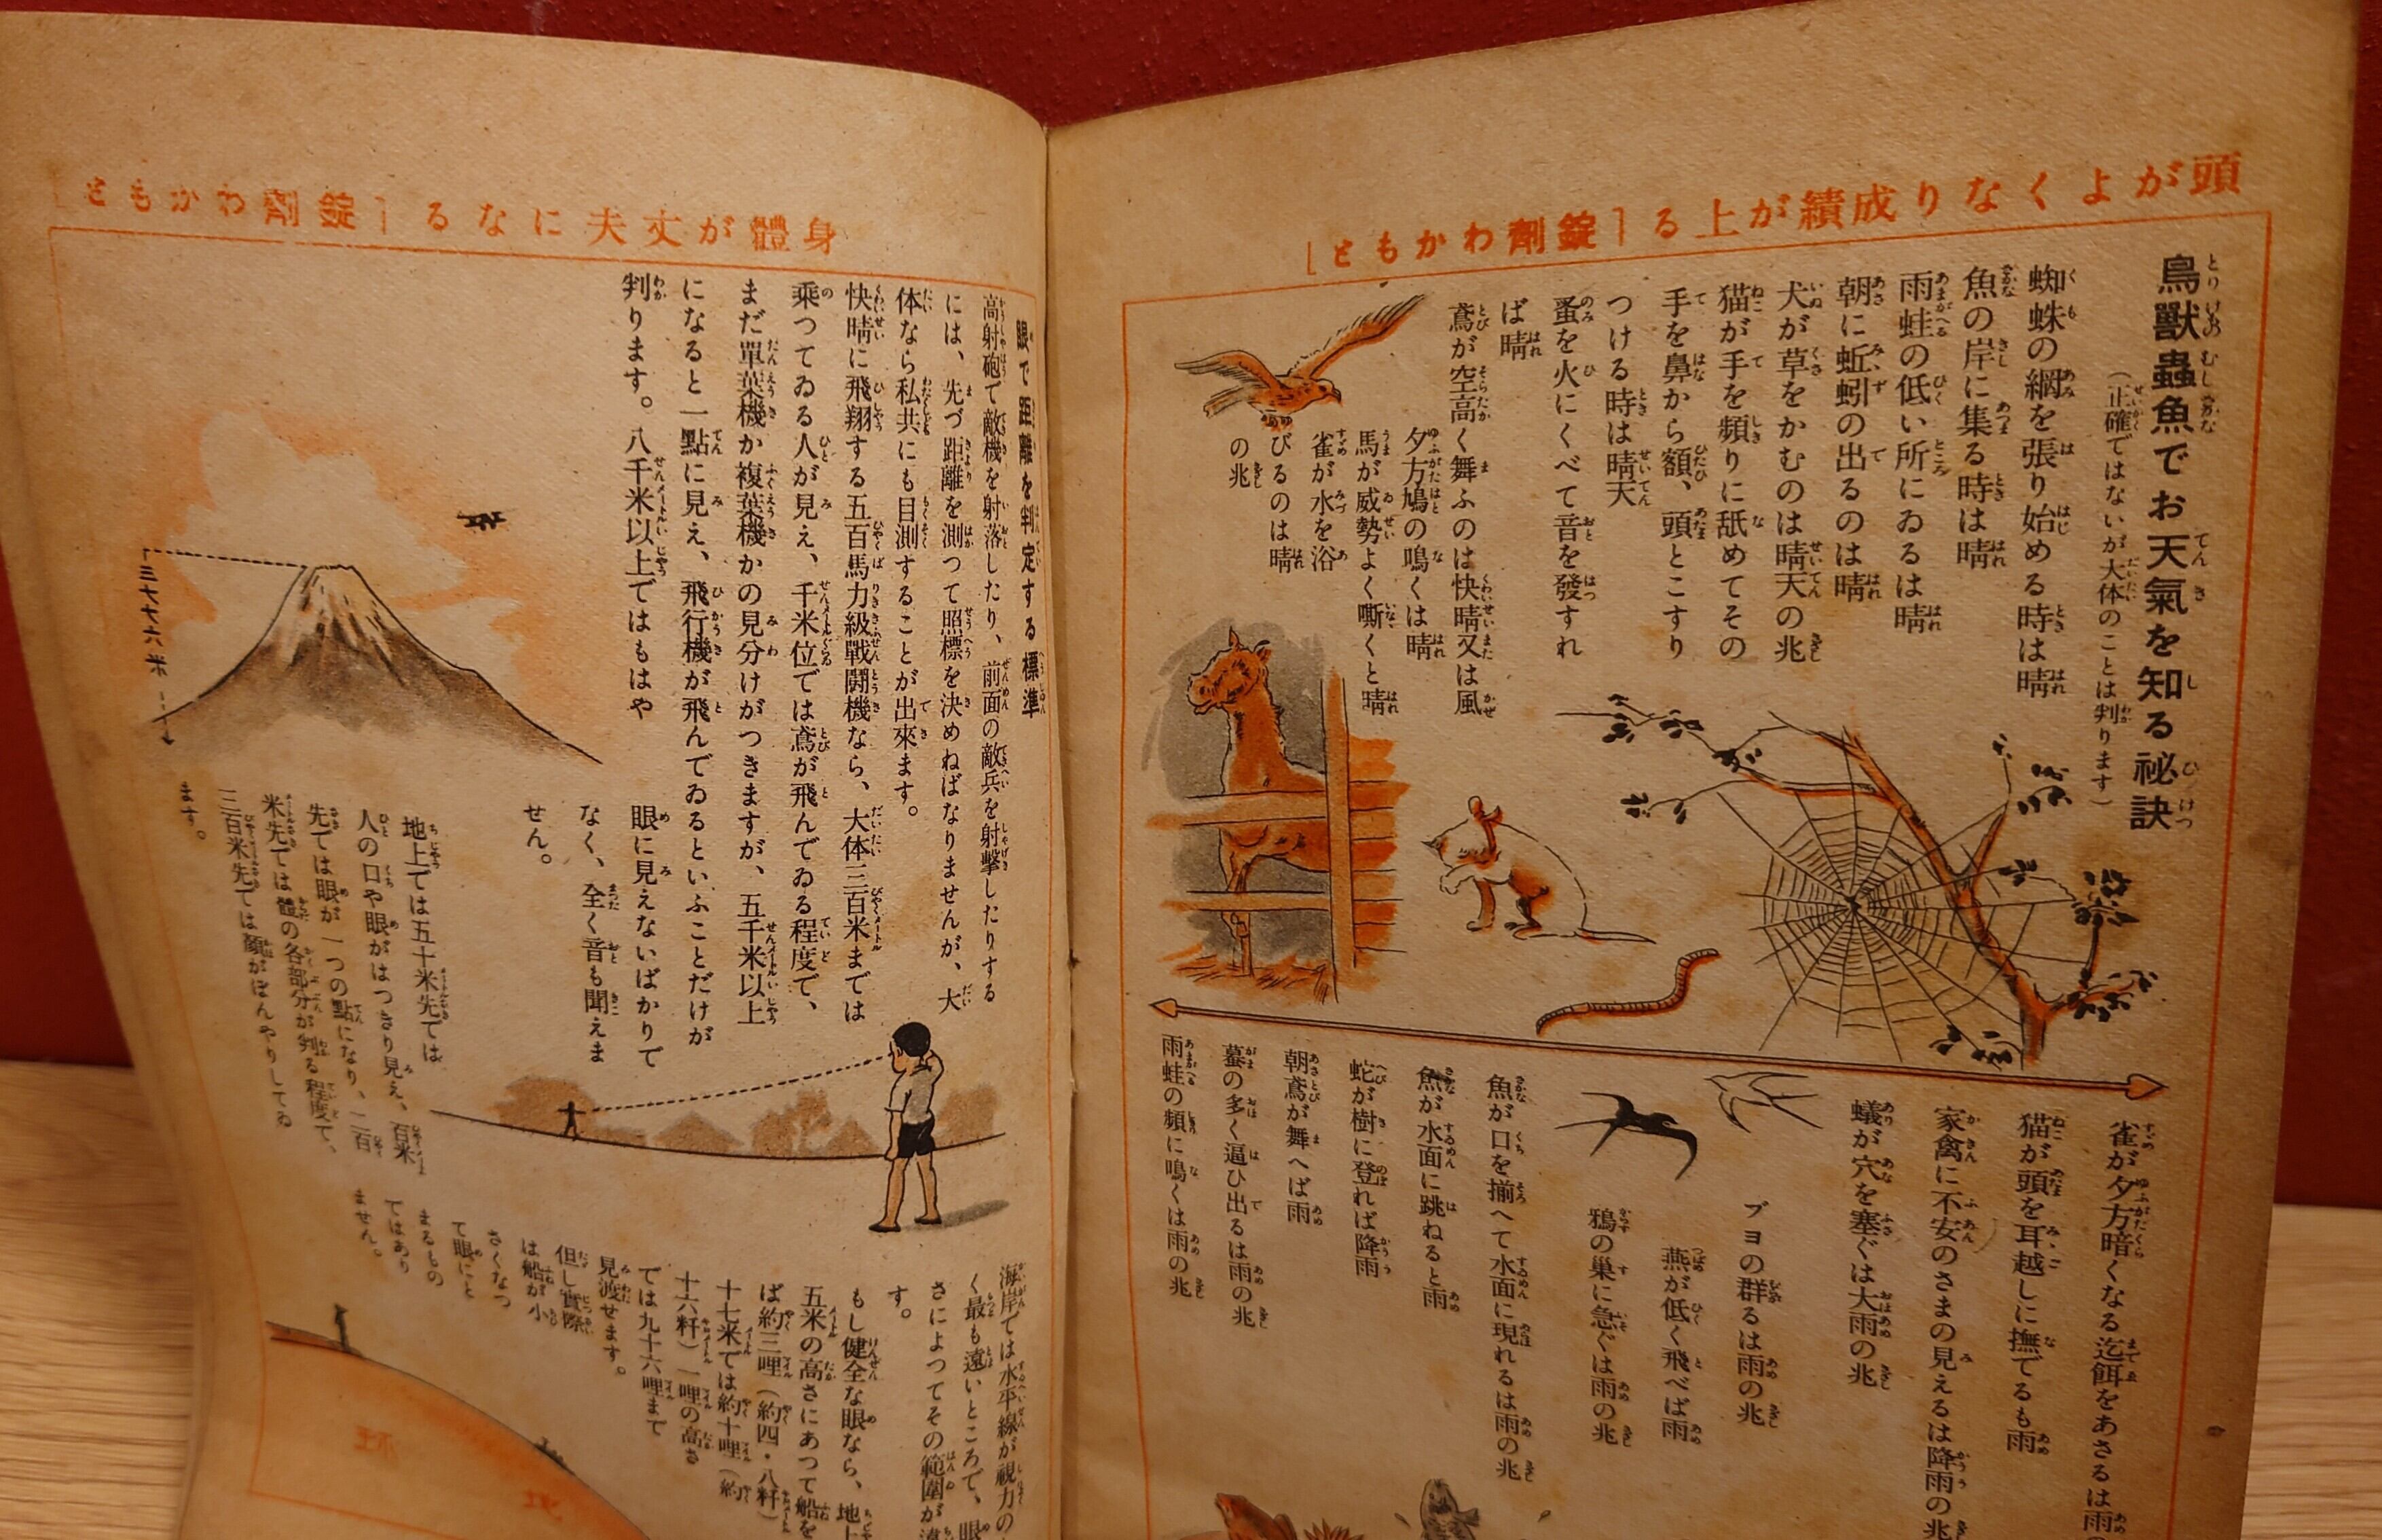 頭がよくなり成績が上る［錠劑わかもと］
鳥獸蟲魚でお天氣を知る祕訣
（正確ではないが大体のことは判ります）
蜘蛛の網を張り始める時は晴
魚の岸に集る時は晴
雨蛙の低い所にゐるは晴
朝に蚯蚓の出るのは晴
犬が草をかむのは晴天の兆
猫が手を頻りに舐めてその
手を鼻から額、頭とこすり
つける時は晴天
蚤を火にくべて音を發すれ
ば晴
鳶が空高く舞ふのは快晴又は風
夕方鳩の鳴くは晴
馬が威勢よく嘶くと晴
雀が水を浴
びるのは晴
の兆
雀が夕方暗くなる迄餌をあさるは雨
猫が頭を耳越しに撫でるも雨
家禽に不安のさまの見えるは降雨の兆
蟻が穴を塞ぐは大雨の兆
ブヨの群るは雨の兆
燕が低く飛べば雨
鴉の巣に急ぐは雨の兆
魚が口を揃へて水面に現れるは雨の兆
魚が水面に跳ねると雨
蛇が樹に登れば降雨
朝鳶が舞へば雨
蟇の多く逼ひ出るは雨の兆
雨蛙の頻に鳴くは雨の兆
身體が丈夫になる［錠劑わかもと］
眼で距離を判定する標準
高射砲で敵機を射落したり、前面の敵兵を射撃したりする
には、先づ距離を測つて照標を決めねばなりませんが、大
体なら私共にも目測することが出來ます。
快晴に飛翔する五百馬力級戰闘機なら、大体三百米までは
乘つてゐる人が見え、千米位では鳶が飛んでゐる程度で、
まだ單葉機か複葉機かの見分けがつきますが、五千米以上
になると一點に見え、飛行機が飛んでゐるといふことだけが
判ります。八千米以上ではもはや
眼に見えないばかりで
なく、全く音も聞えま
せん。
三七七六米
地上では五十米先では
人の口や眼がはつきり見え、百米
先では眼が一つの點になり、二百
米先では體の各部分が判る程度で、
三百米先では顔がぼんやりしてゐ
ます。
海岸では水平線が視力の
く最も遠いところで、眼
さによつてその範圍が
す。
もし健全な眼なら、地上
五米の高さにあつて船を
ば約三哩（約四・八粁）
十七米では約十哩（約
十六粁）一哩の高さ
では九十六哩まで
見渡せます。
但し實際
は船が小
さくなつ
て眼にと
まるもの
ではあり
ません。